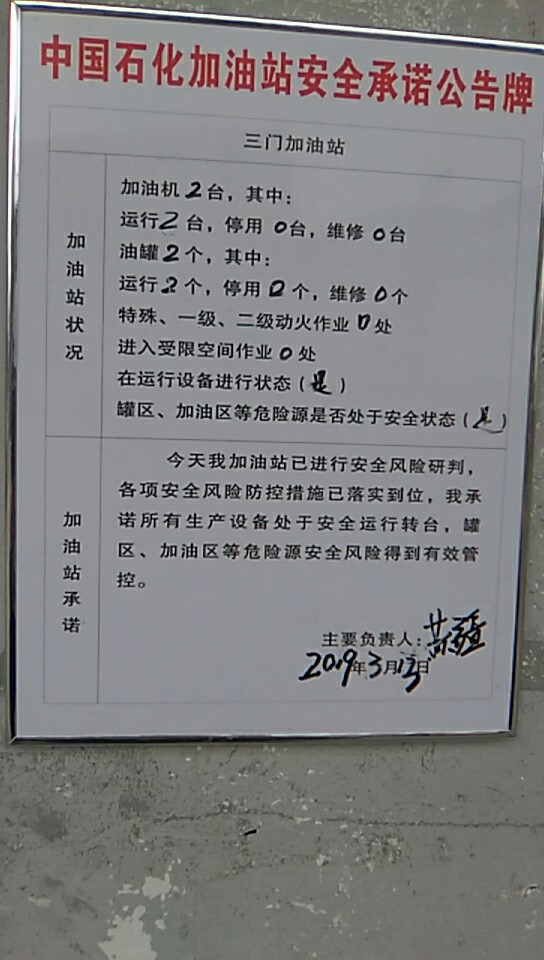 中国石化加油站安全承诺公告牌
三门加油站
加油站状况
加油机2台，其中：
运行2台，停用0台，维修0台
油罐2个，其中：
运行2个，停用0个，维修0个
特殊、一级、二级动火作业0处
进入受限空间作业0处
在运行设备进行状态（是）
罐区、加油区等危险源是否处于安全状态（是）
加油站承诺
今天我加油站已进行安全风险研判，
各项安全风险防控措施已落实到位，我承
诺所有生产设备处于安全运行转台，罐
区、加油区等危险源安全风险得到有效管
控。
主要负责人：
2019年3月13日